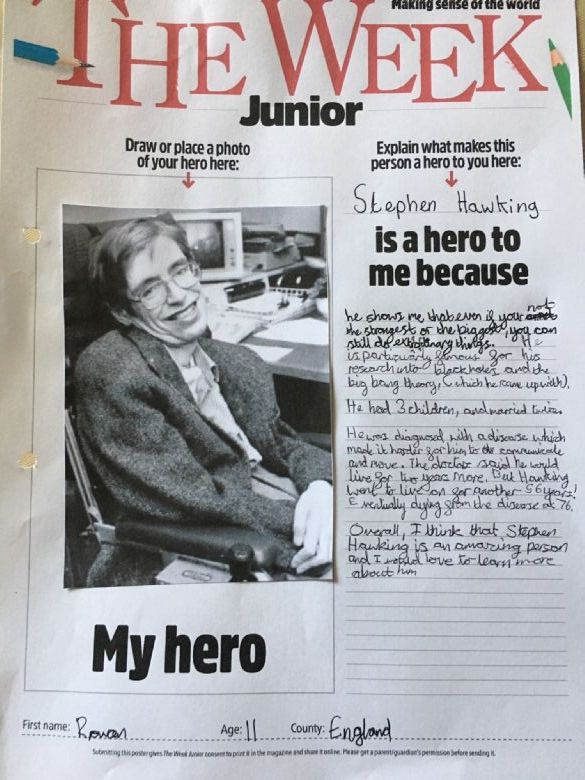 Making sense of the world
THE WEEK
Junior
Draw or place a photo
of your hero here:
Explain what makes this
person a hero to you here:
Stephen Hawking
is a hero to
me because
he shows me that even if your not
the strongest or the biggest, you can
still do extrordinary things. He
is particularly famous for his
research into blackholes and the
big bang theory, (which he came up with).
He had 3 children, and married twice.
He was diagnosed with a disease which
made it harder for him to communicate
and move. The doctors said he would
live for two years more. But Hawking
went to live on for another 56 years!
Eventually dying from the disease at 76.
Overall, I think that Stephen
Hawking is an amazing person
and I would love to learn more
about him
My hero
First name: Rowan Age: 11 County: England
Submitting this poster gives The Week Junior consent to print it in the magazine and share it online. Please get a parent/guardian's permission before sending it.